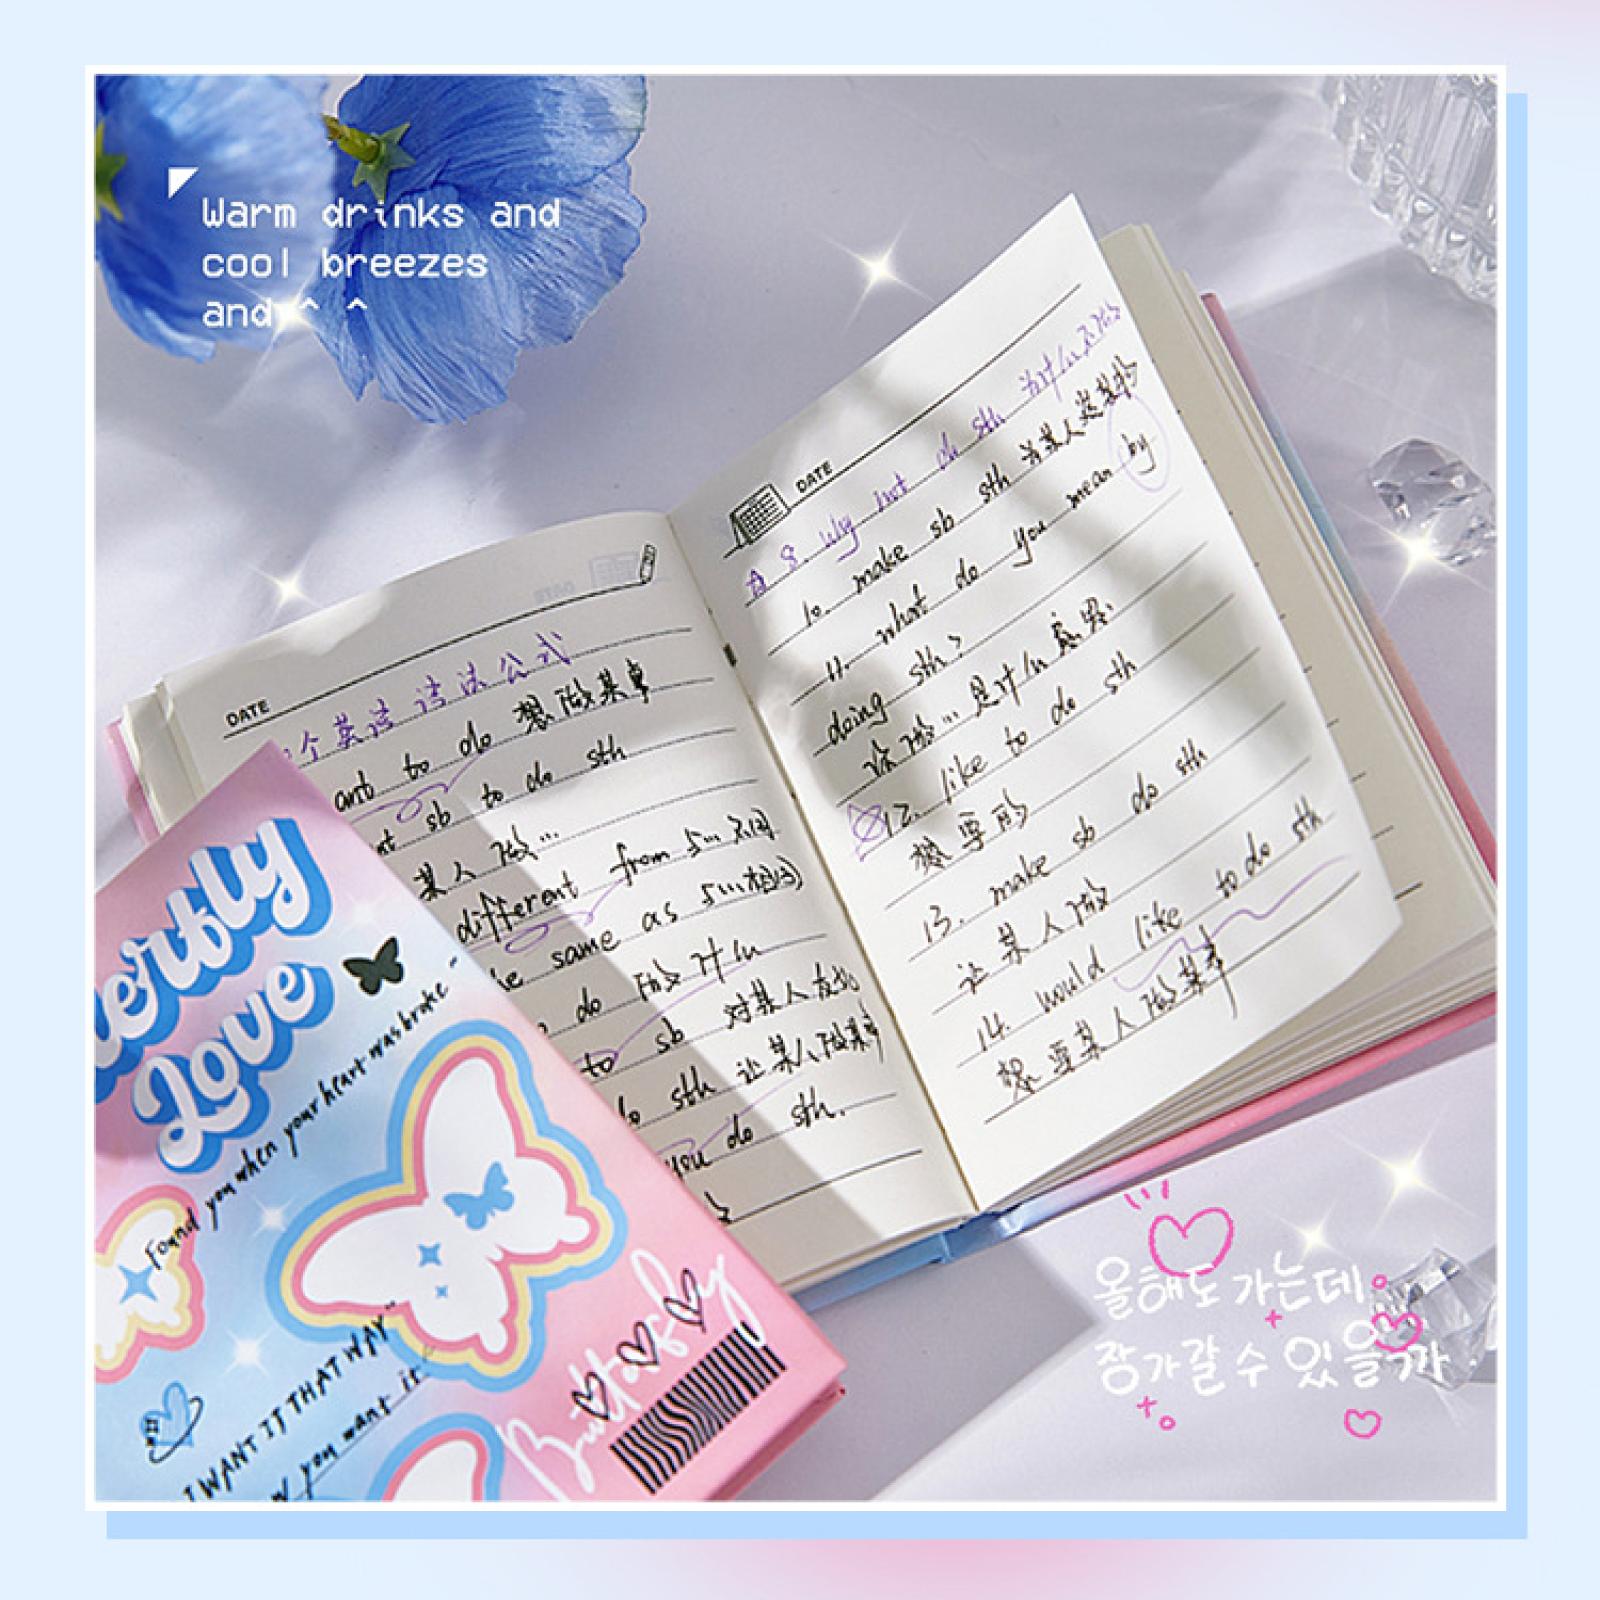 Warm drinks and
cool breezes
and ^ ^
DATE
个英语语法公式
ant to do 想做某事
nt sb to do sth
某人做…
different from 与…不同
he same as 与…相同
do 做什么
to sb 对某人友好
do sth 让某人做某事
you do sth.
DATE
8. why not do sth 为什么不做
10. make sb sth 为某人做某物
11. what do you mean by
doing sth?
你做…是什么意思.
12. like to do sth
想要的
13. make sb do sth
让某人做
14. would like to do sth
想要某人做某事
erbly
Love
Found you when your heart was broke ~
I WANT IT THAT WAY"
w you want it
Butterfly
올해도 가는데
장가갈 수 있을까